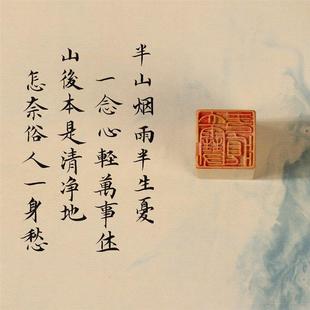 半山烟雨半生憂
一念心輕萬事休
山後本是清净地
怎奈俗人一身愁